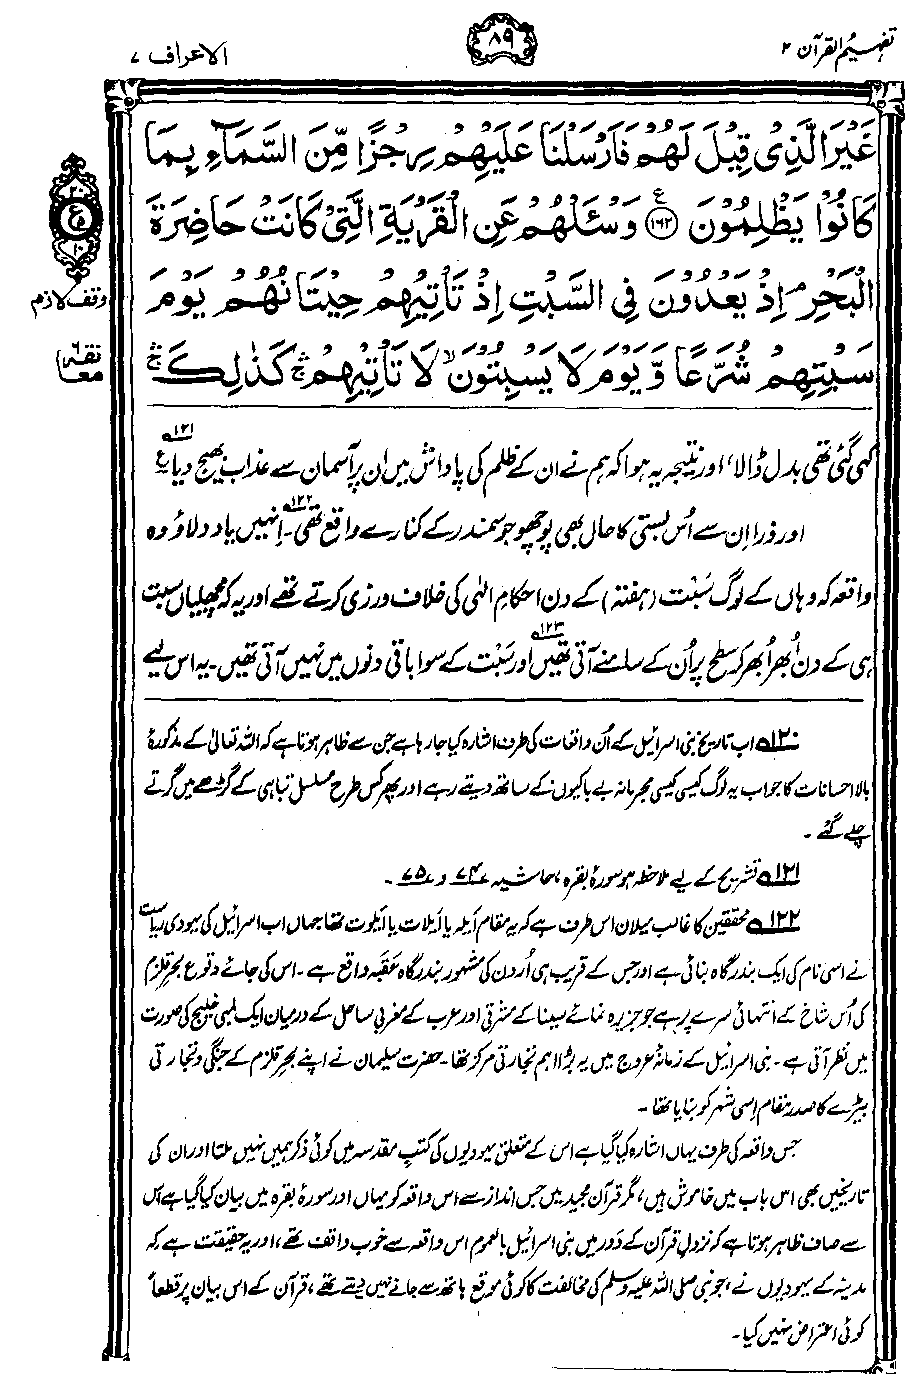 تفہیم القرآن ۲
۸۹
الاعراف ۷
غَيْرَ الَّذِيْ قِيْلَ لَهُمْ فَاَرْسَلْنَا عَلَيْهِمْ رِجْزًا مِّنَ السَّمَآءِ بِمَا
كَانُوْا يَظْلِمُوْنَ ﴿۱۶۲﴾ ع وَسْـَٔلْهُمْ عَنِ الْقَرْيَةِ الَّتِيْ كَانَتْ حَاضِرَةَ
الْبَحْرِ ۘ اِذْ يَعْدُوْنَ فِي السَّبْتِ اِذْ تَاْتِيْهِمْ حِيْتَانُهُمْ يَوْمَ
سَبْتِهِمْ شُرَّعًا وَّيَوْمَ لَا يَسْبِتُوْنَ ۙ لَا تَاْتِيْهِمْ ۛ كَذٰلِكَ ۛ
ع
وقف لازم
معا
کہی گئی تھی بدل ڈالا، اور نتیجہ یہ ہوا کہ ہم نے ان کے ظلم کی پاداش میں ان پر آسمان سے عذاب بھیج دیا ۱۲۱ ع
اور ذرا اِن سے اُس بستی کا حال بھی پوچھو جو سمندر کے کنارے واقع تھی۔ ۱۲۲ اِنہیں یاد دلاؤ وہ
واقعہ کہ وہاں کے لوگ سَبْت (ہفتہ) کے دن احکامِ الٰہی کی خلاف ورزی کرتے تھے اور یہ کہ مچھلیاں سبت
ہی کے دن اُبھر اُبھر کر سطح پر اُن کے سامنے آتی تھیں ۱۲۳ اور سَبْت کے سوا باقی دنوں میں نہیں آتی تھیں۔ یہ اس لیے
۱۲۰ اب تاریخ بنی اسرائیل کے اُن واقعات کی طرف اشارہ کیا جا رہا ہے جن سے ظاہر ہوتا ہے کہ اللہ تعالیٰ کے مذکورۂ
بالا احسانات کا جواب یہ لوگ کیسی کیسی مجرمانہ بے باکیوں کے ساتھ دیتے رہے اور پھر کس طرح مسلسل تباہی کے گڑھے میں گرتے
چلے گئے۔
۱۲۱ تشریح کے لیے ملاحظہ ہو سورۂ بقرہ، حاشیہ ۷۴ و ۷۵۔
۱۲۲ محققین کا غالب میلان اس طرف ہے کہ یہ مقام اَیلہ یا اَیلات یا اَیلوت تھا جہاں اب اسرائیل کی یہودی ریاست
نے اسی نام کی ایک بندرگاہ بنائی ہے اور جس کے قریب ہی اُردن کی مشہور بندرگاہ عَقَبہ واقع ہے۔ اس کی جائے وقوع بحرِ قلزم
کی اُس شاخ کے انتہائی سرے پر ہے جو جزیرہ نمائے سینا کے مشرقی اور عرب کے مغربی ساحل کے درمیان ایک لمبی خلیج کی صورت
میں نظر آتی ہے۔ بنی اسرائیل کے زمانۂ عروج میں یہ بڑا اہم تجارتی مرکز تھا۔ حضرت سلیمان نے اپنے بحرِ قلزم کے جنگی و تجارتی
بیڑے کا صدر مقام اِسی شہر کو بنایا تھا۔
جس واقعہ کی طرف یہاں اشارہ کیا گیا ہے اس کے متعلق یہودیوں کی کتبِ مقدسہ میں کوئی ذکر ہمیں نہیں ملتا اور ان کی
تاریخیں بھی اس باب میں خاموش ہیں، مگر قرآن مجید میں جس انداز سے اس واقعہ کو یہاں اور سورۂ بقرہ میں بیان کیا گیا ہے اُس
سے صاف ظاہر ہوتا ہے کہ نزولِ قرآن کے دَور میں بنی اسرائیل بالعموم اس واقعہ سے خوب واقف تھے، اور یہ حقیقت ہے کہ
مدینہ کے یہودیوں نے، جو نبی صلی اللہ علیہ وسلم کی مخالفت کا کوئی موقع ہاتھ سے جانے نہیں دیتے تھے، قرآن کے اس بیان پر قطعاً
کوئی اعتراض نہیں کیا۔